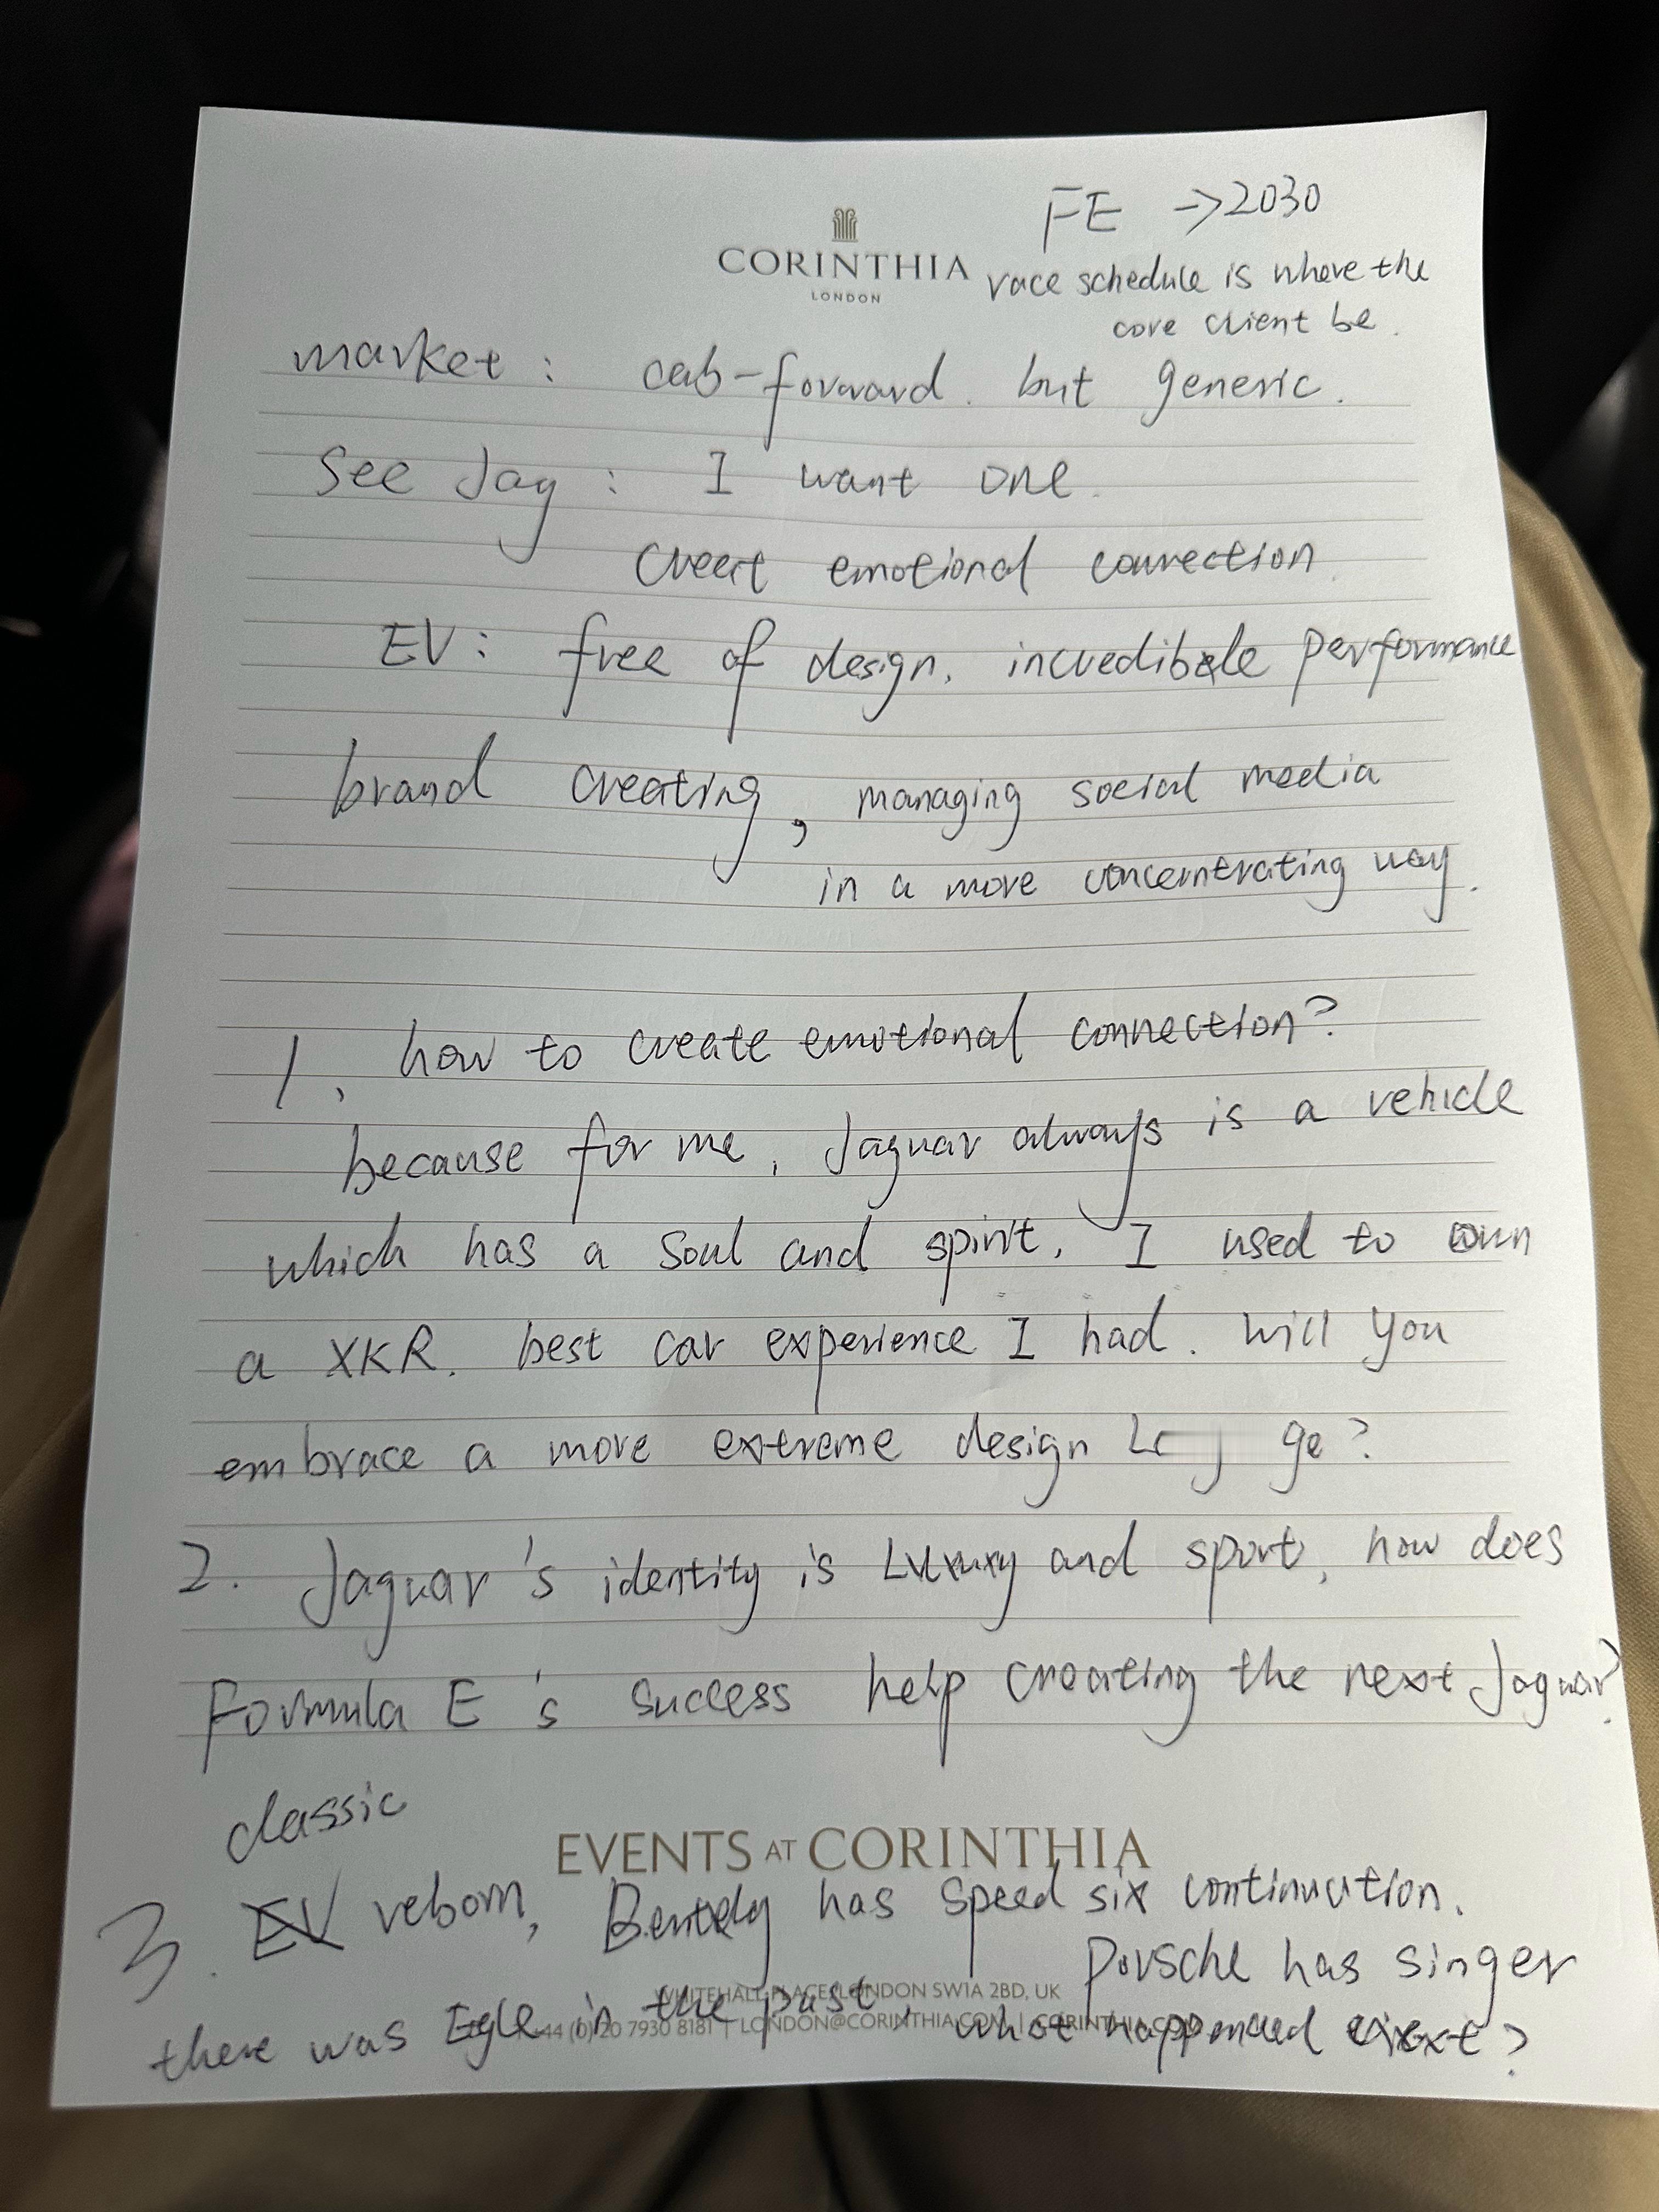 FE →2030
CORINTHIA
LONDON
race schedule is where the
core client be.
market : cab-forward. but generic.
See Jag : I want one.
creat emotional connection.
EV: free of design. incredible performance
brand creating, managing social media
in a more concerntrating way.
1、how to create emotional connection?
because for me, Jaguar always is a vehicle
which has a soul and spirit, I used to own
a XKR. best car experience I had. will you
embrace a more extreme design ge?
2. Jaguar's identity is Luxury and sport, how does
Formula E's success help creating the next Jaguar?
classic
EVENTS AT CORINTHIA
3. EV reborn, Bentely has speed six continuation.
Porsche has singer
WHITEHALL PLACE, LONDON SW1A 2BD, UK
there was Egle in the past, what happened next?
+44 (0) 20 7930 8181 | LONDON@CORINTHIA.COM | CORINTHIA.COM